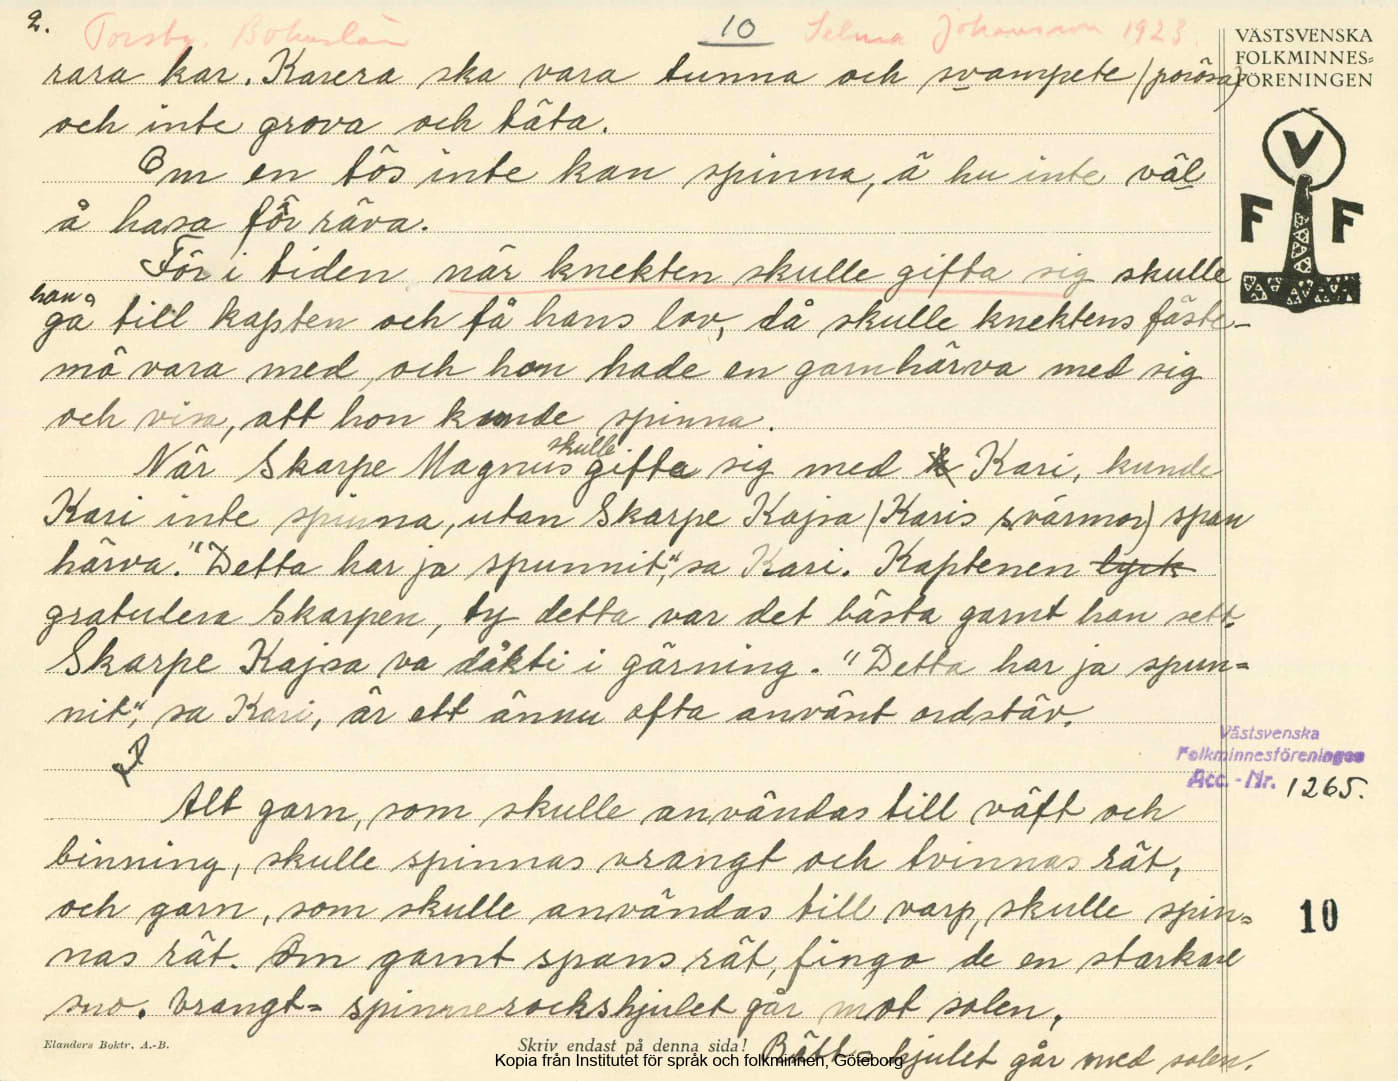 2.
Torsby. Bohuslän 10 Selma Johansson 1923.
VÄSTSVENSKA
FOLKMINNES-
FÖRENINGEN
rara kar. Karera ska vara tunna och svampete (porösa)
och inte grova och täta.
V
F F
Om en tös inte kan spinna, ä hu inte väl
å hasa för räva.
För i tiden när knekten skulle gifta sig skulle
han
gå till kapten och få hans lov, då skulle knektens fäste-
mö vara med och hon hade en garnhärva med sig
och visa, att hon kunde spinna.
skulle
När Skarpe Magnus gifta sig med Kari, kunde
Kari inte spinna, utan Skarpe Kajsa (Karis svärmor) span
härva. "Detta har ja spunnit", sa Kari. Kaptenen tyck
gratulera Skarpen, ty detta var det bästa garnt han sett.
Skarpe Kajsa va däkti i gärning. "Detta har ja spun-
nit", sa Kari, är ett ännu ofta använt ordstäv.
Västsvenska
Folkminnesföreningen
Acc.-Nr. 1265.
Alt garn, som skulle användas till väft och
binning, skulle spinnas vrangt och tvinnas rät,
och garn, som skulle användas till varp, skulle spin-
10
nas rät. Om garnt spans rät, fingo de en starkare
sno. Vrangt= spinnerockshjulet går mot solen,
Rätt= hjulet går med solen.
Elanders Boktr. A.-B.
Skriv endast på denna sida!
Kopia från Institutet för språk och folkminnen, Göteborg